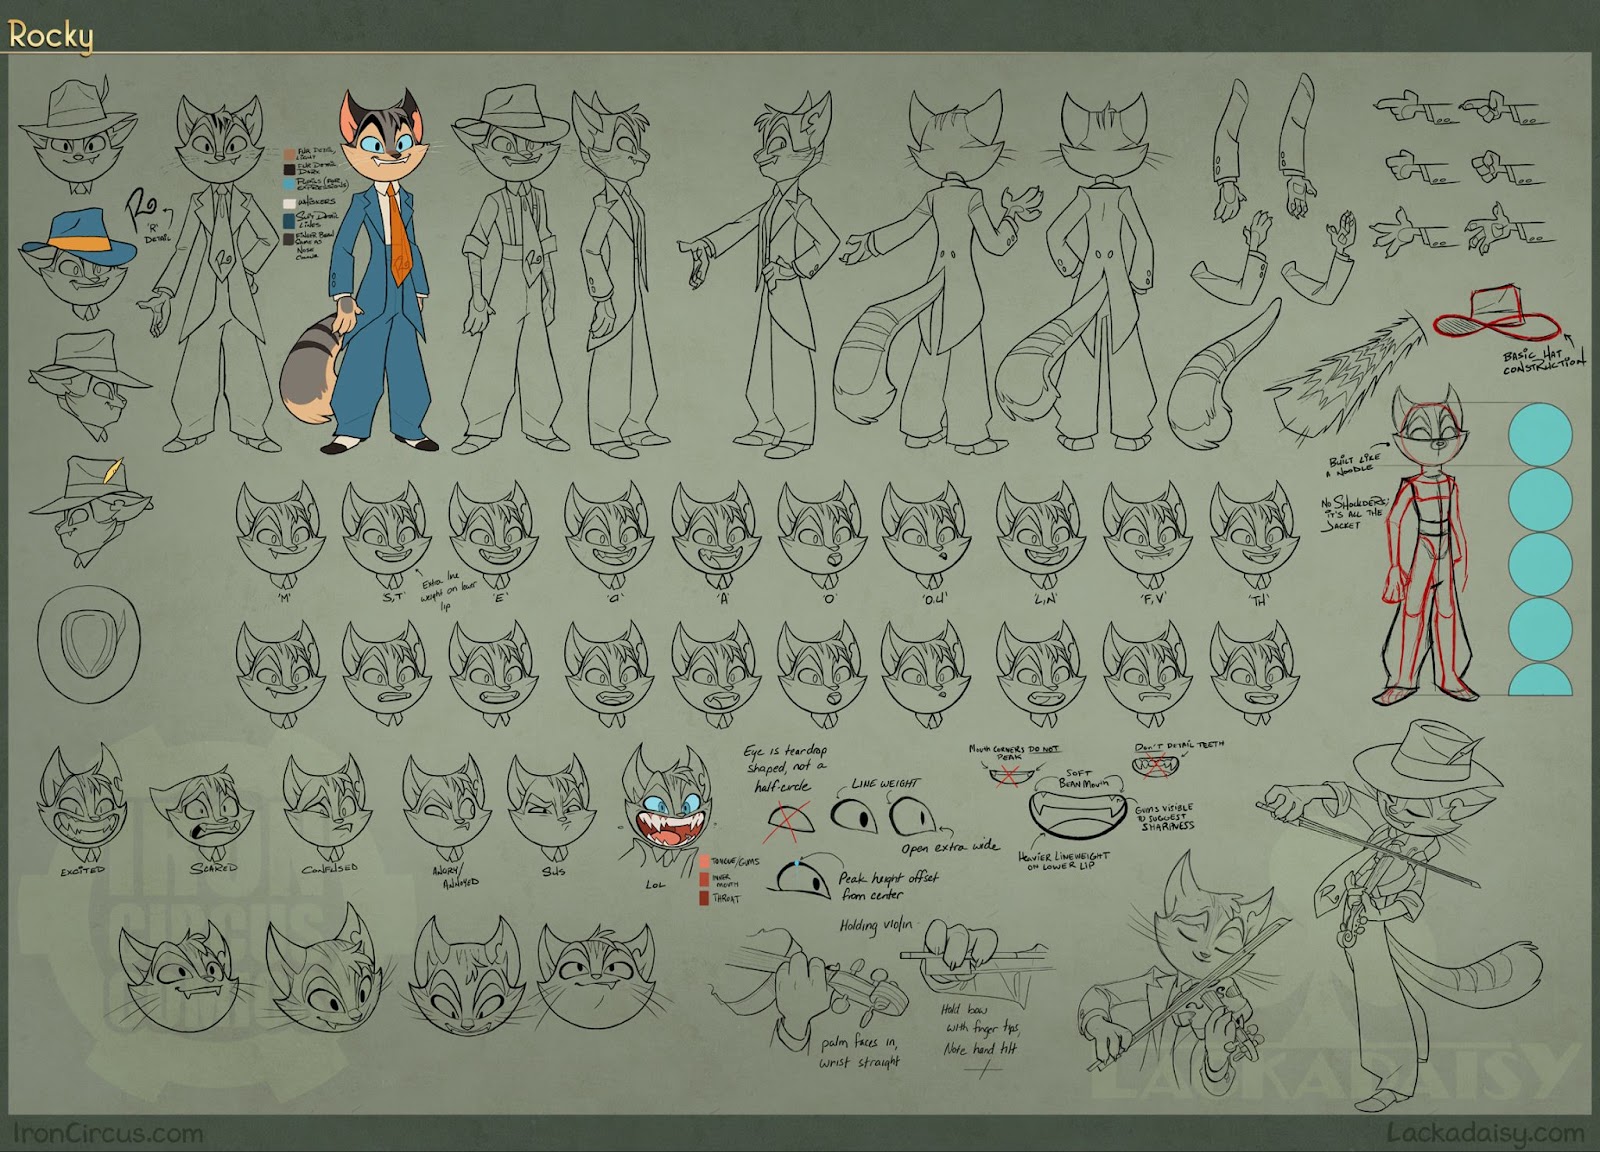 Rocky
'R'
DETAIL
FUR DETAIL
LIGHT
FUR DETAIL
DARK
PUPILS (FOR
EXPRESSIONS)
WHISKERS
SUIT DETAIL
LINES
FINGER BEAN
SAME AS
NOSE
COLOUR
BASIC HAT
CONSTRUCTION
BUILT LIKE
A NOODLE
NO SHOULDERS;
IT'S ALL THE
JACKET
Extra line
weight on lower
lip
'M'
S,T'
'E'
'A'
'O'
'O.U'
'L,N'
'F,V'
'TH'
EXCITED
SCARED
CONFUSED
ANGRY/
ANNOYED
SUS
LOL
TONGUE/GUMS
INNER
MOUTH
THROAT
Eye is teardrop
shaped, not a
half-circle
LINE WEIGHT
Open extra wide
Peak height offset
from center
MOUTH CORNERS DO NOT
PEAK
DON'T DETAIL TEETH
SOFT
BEAN MOUTH
GUMS VISIBLE
TO SUGGEST
SHARPNESS
HEAVIER LINEWEIGHT
ON LOWER LIP
Holding violin
palm faces in,
wrist straight
Hold bow
with finger tips,
Note hand tilt
IRON
CIRCUS
COMICS
LACKADAISY
IronCircus.com
Lackadaisy.com